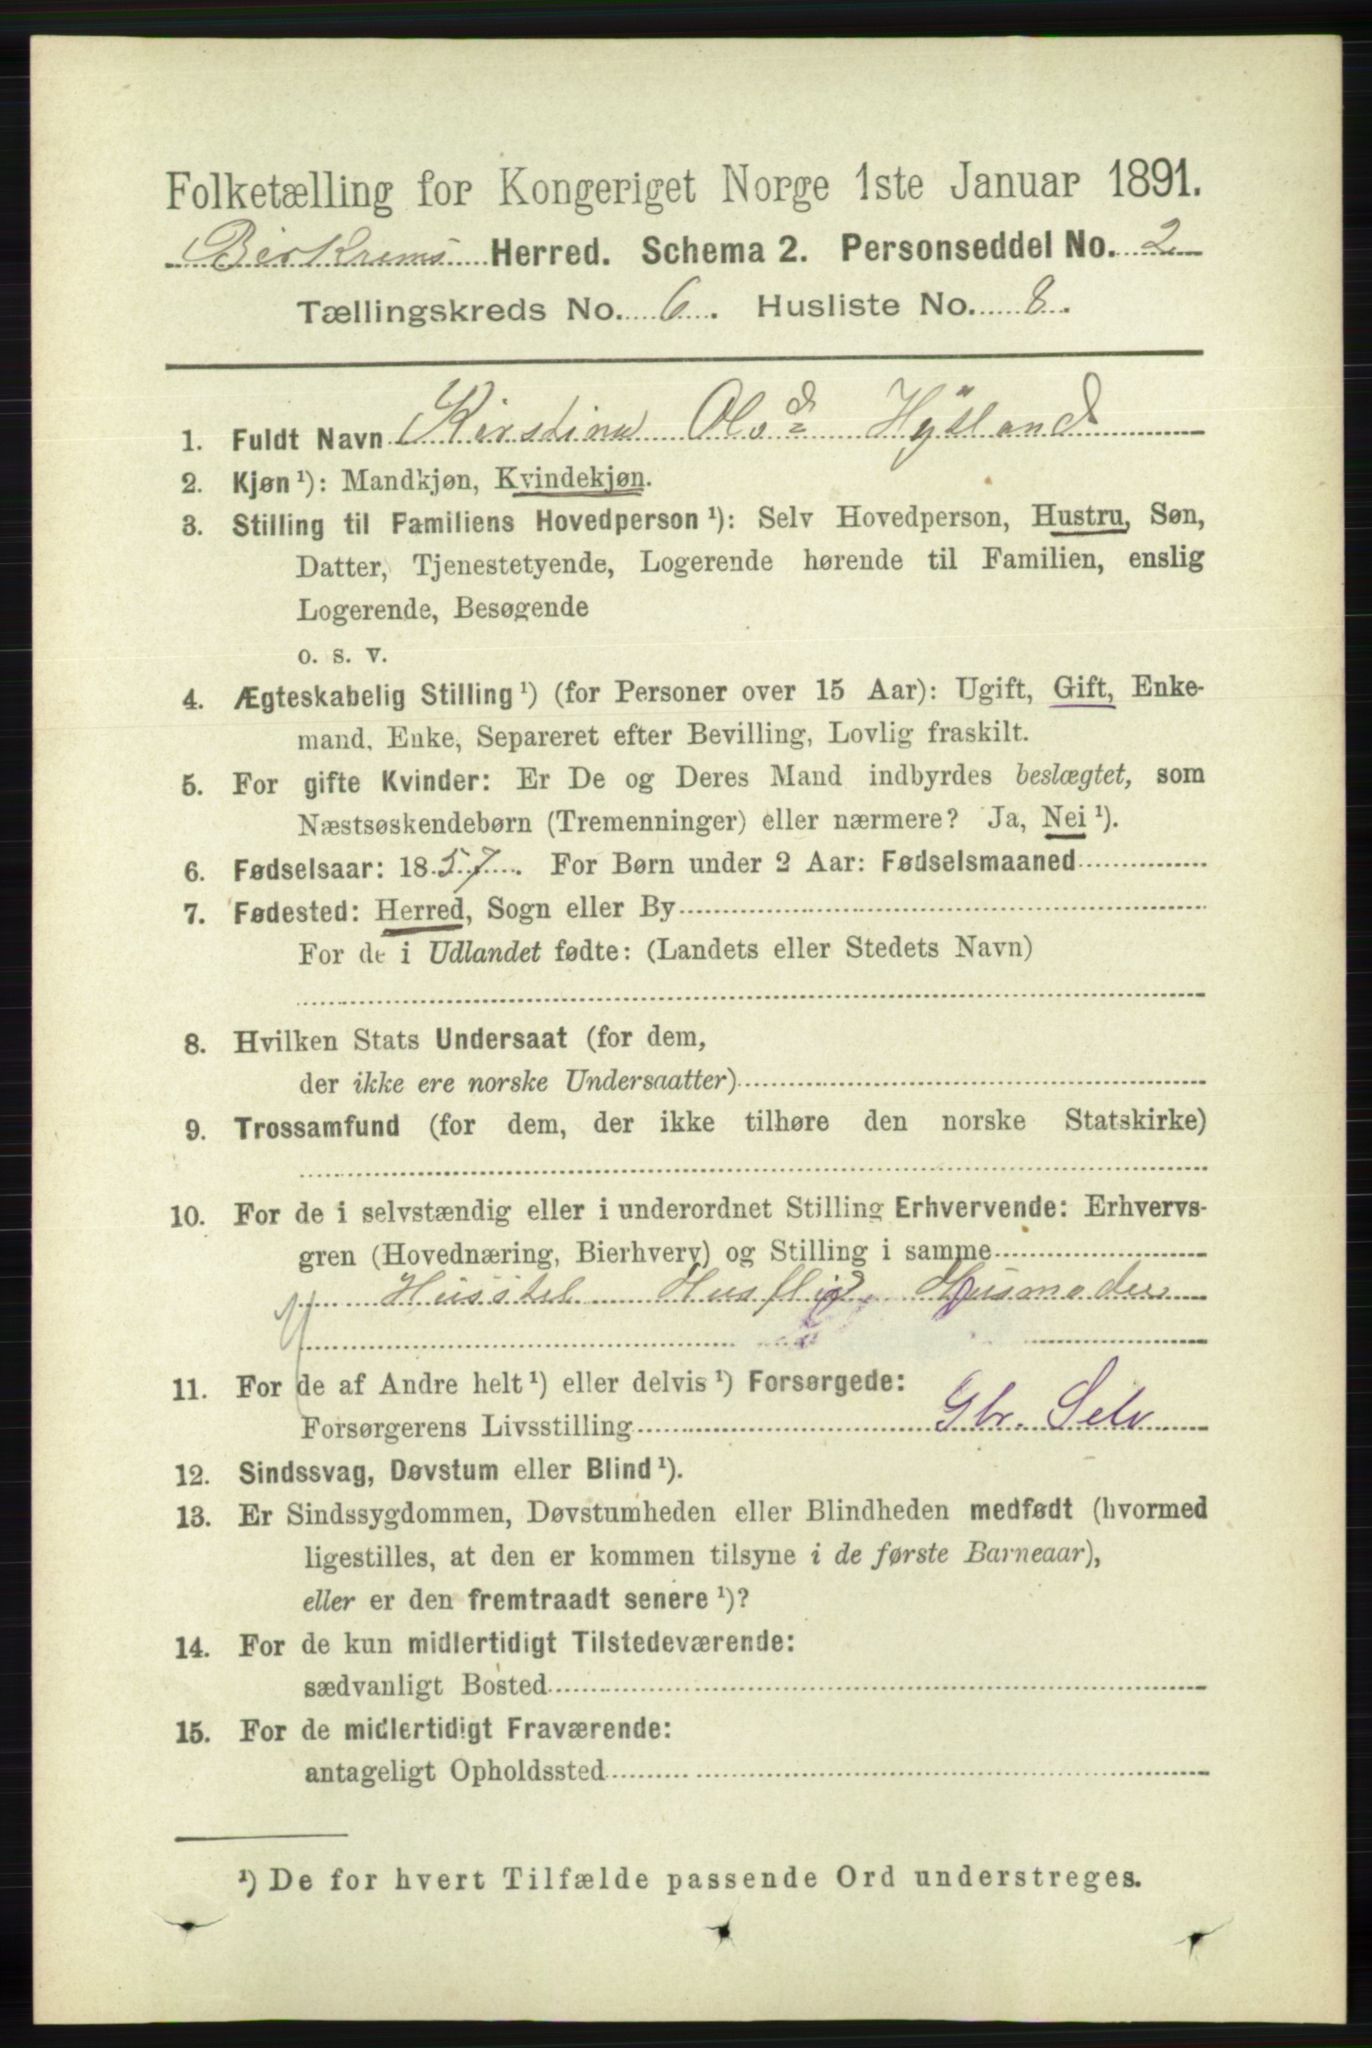 Folketælling for Kongeriget Norge 1ste Januar 1891.
Birkrems Herred. Schema 2. Personseddel No. 2
Tællingskreds No. 6. Husliste No. 8.
1. Fuldt Navn Kirstine Olsd Hysland
2. Kjøn ¹): Mandkjøn, Kvindekjøn.
3. Stilling til Familiens Hovedperson ¹): Selv Hovedperson, Hustru, Søn,
Datter, Tjenestetyende, Logerende hørende til Familien, enslig
Logerende, Besøgende
o. s. v.
4. Ægteskabelig Stilling ¹) (for Personer over 15 Aar): Ugift, Gift, Enke-
mand, Enke, Separeret efter Bevilling, Lovlig fraskilt.
5. For gifte Kvinder: Er De og Deres Mand indbyrdes beslægtet, som
Næstsøskendebørn (Tremenninger) eller nærmere? Ja, Nei ¹).
6. Fødselsaar: 1857. For Børn under 2 Aar: Fødselsmaaned
7. Fødested: Herred, Sogn eller By
For de i Udlandet fødte: (Landets eller Stedets Navn)
8. Hvilken Stats Undersaat (for dem,
der ikke ere norske Undersaatter)
9. Trossamfund (for dem, der ikke tilhøre den norske Statskirke)
10. For de i selvstændig eller i underordnet Stilling Erhvervende: Erhvervs-
gren (Hovednæring, Bierhverv) og Stilling i samme
Husstel Husflid, Husmoder
11. For de af Andre helt ¹) eller delvis ¹) Forsørgede:
Forsørgerens Livsstilling Gbr. Selv
12. Sindssvag, Døvstum eller Blind ¹).
13. Er Sindssygdommen, Døvstumheden eller Blindheden medfødt (hvormed
ligestilles, at den er kommen tilsyne i de første Barneaar),
eller er den fremtraadt senere ¹)?
14. For de kun midlertidigt Tilstedeværende:
sædvanligt Bosted
15. For de midlertidigt Fraværende:
antageligt Opholdssted
¹) De for hvert Tilfælde passende Ord understreges.